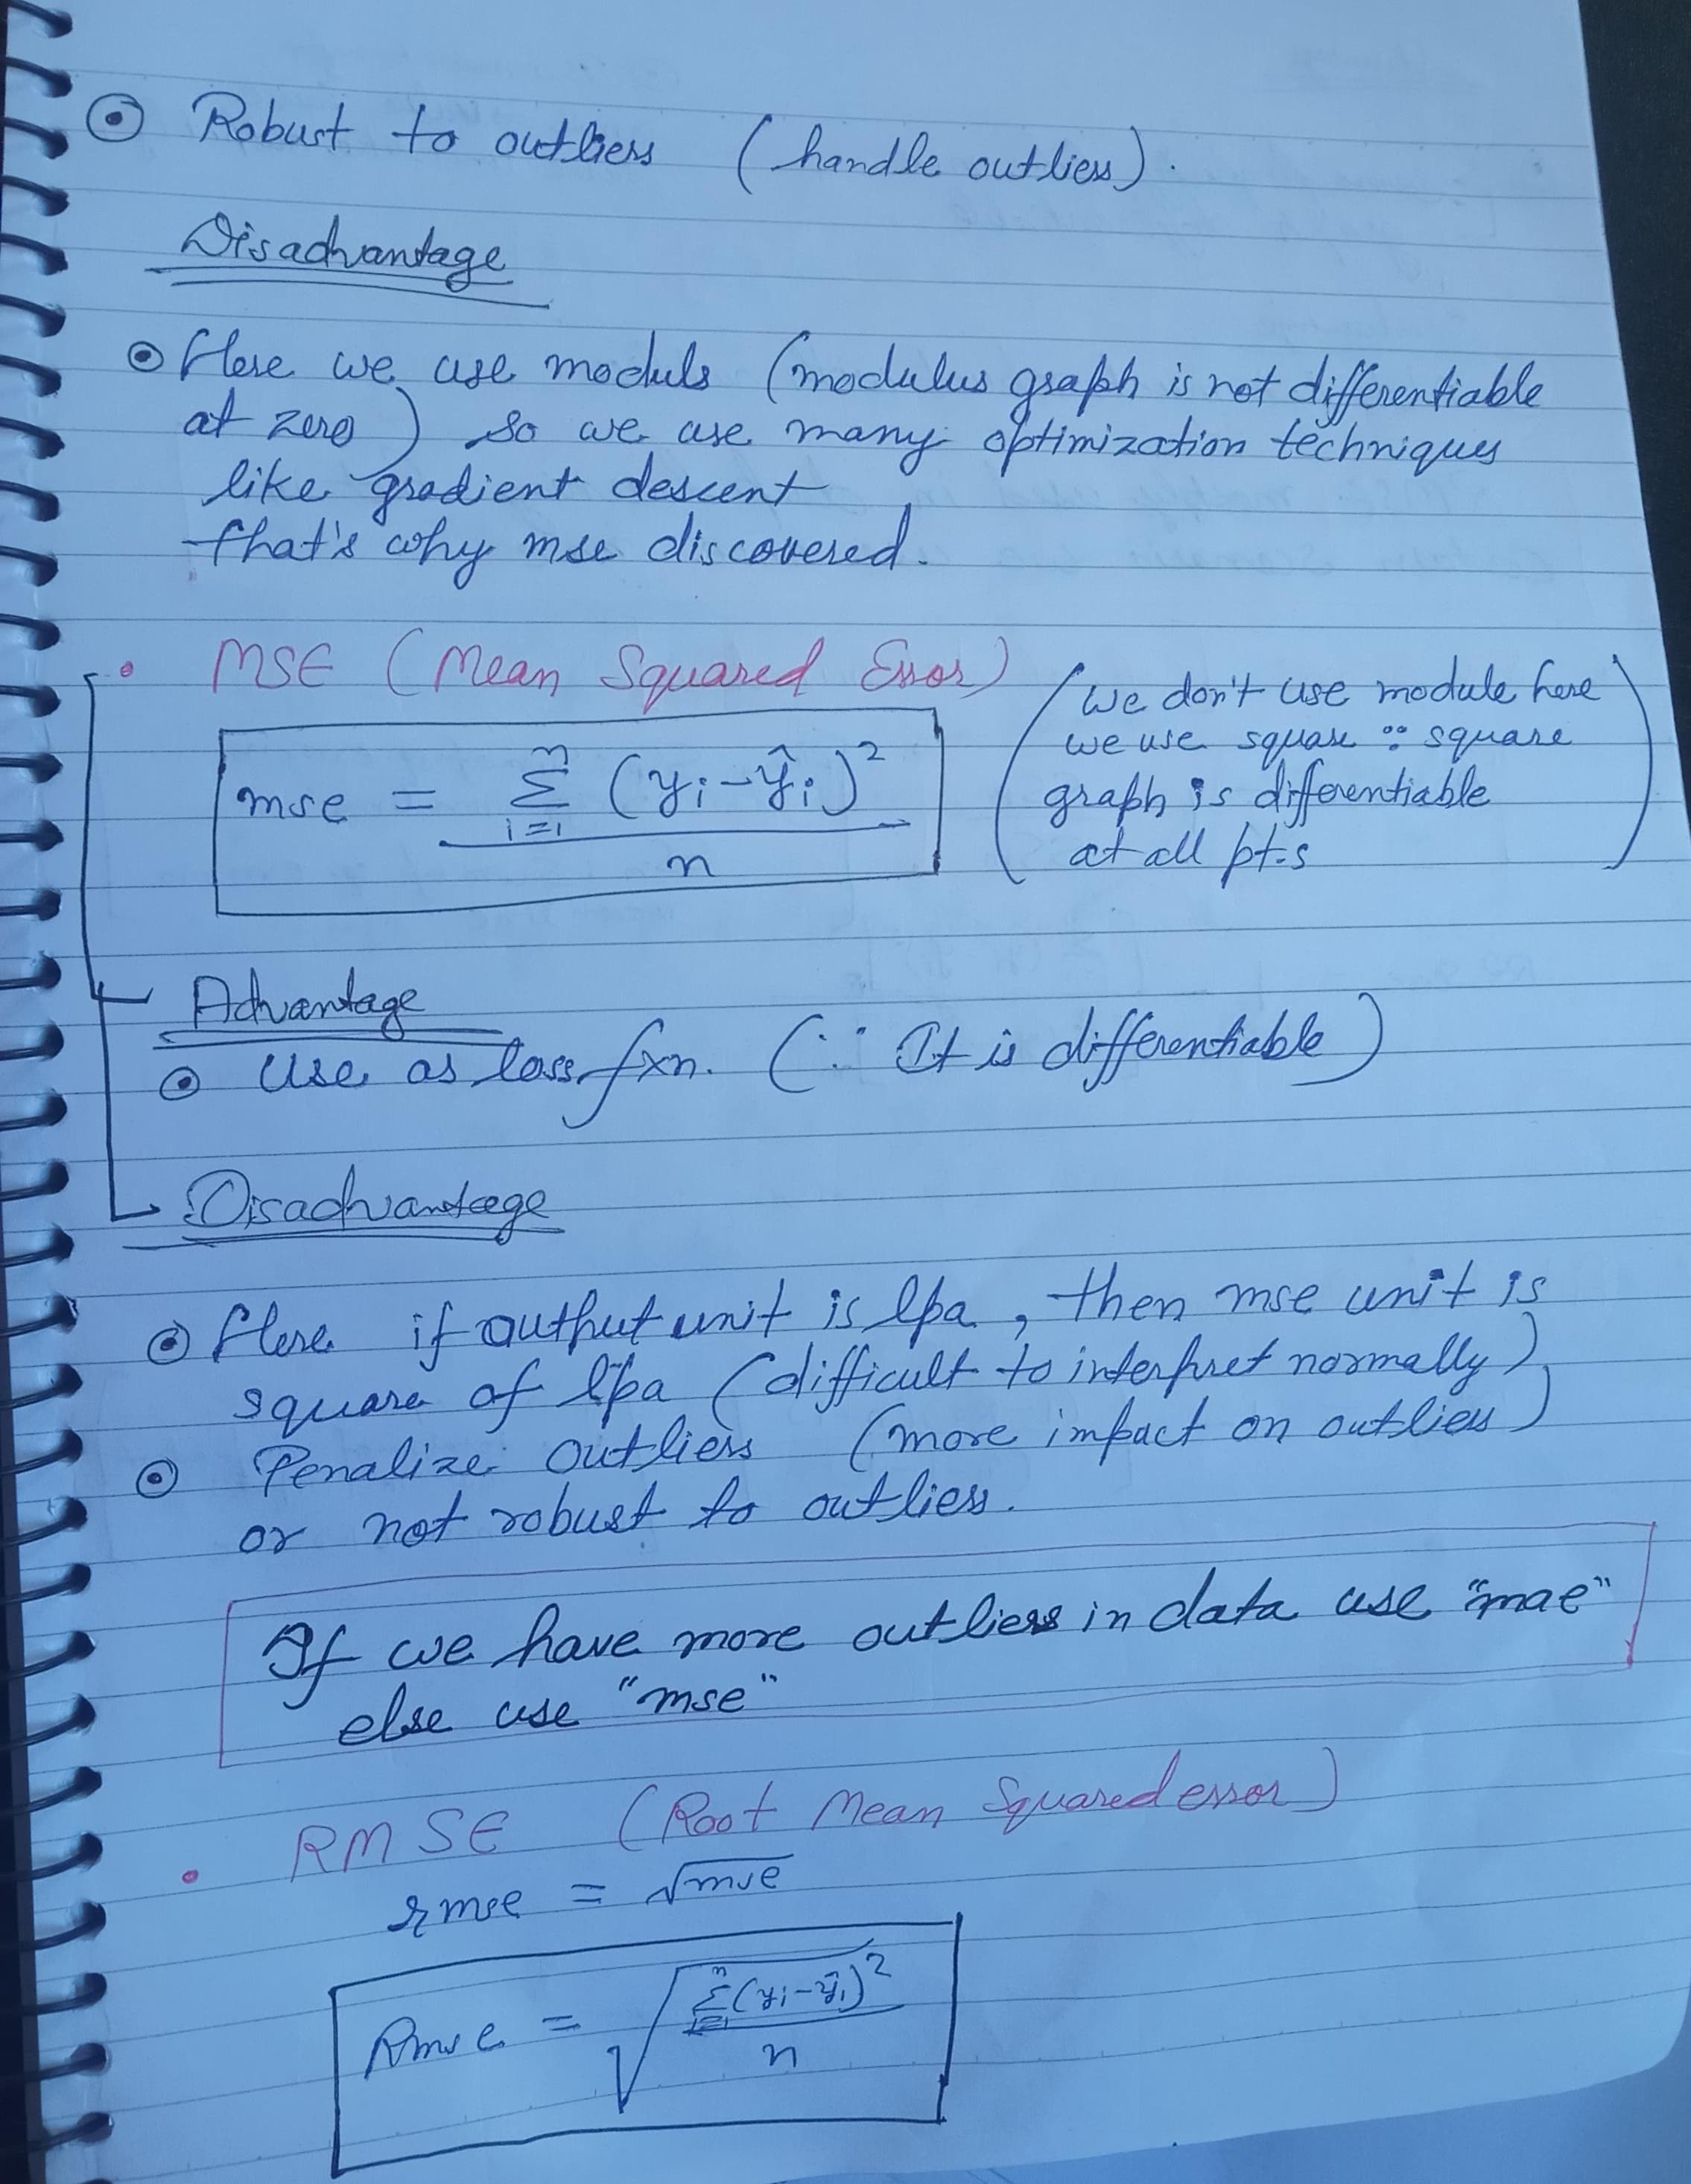 ⊙ Robust to outliers (handle outliers).
Disadvantage
⊙ Here we use moduls (modulus graph is not differentiable
at zero) so we use many optimization techniques
like gradient descent
that's why mse discovered.
• MSE (Mean Squared Error)
mse = Σ_{i=1}^{n} (yi - ŷi)² / n
(we don't use module here
we use square ∵ square
graph is differentiable
at all pt.s)
Advantage
⊙ Use as loss fxn. (∵ It is differentiable)
Disadvantage
⊙ Here if output unit is lpa, then mse unit is
square of lpa (difficult to interpret normally)
⊙ Penalize outliers (more impact on outliers)
or not robust to outliers.
If we have more outliers in data use "mae"
else use "mse"
• RMSE (Root Mean Squared error)
rmse = √mse
Rmse = √(Σ_{i=1}^{n} (yi - ŷi)² / n)